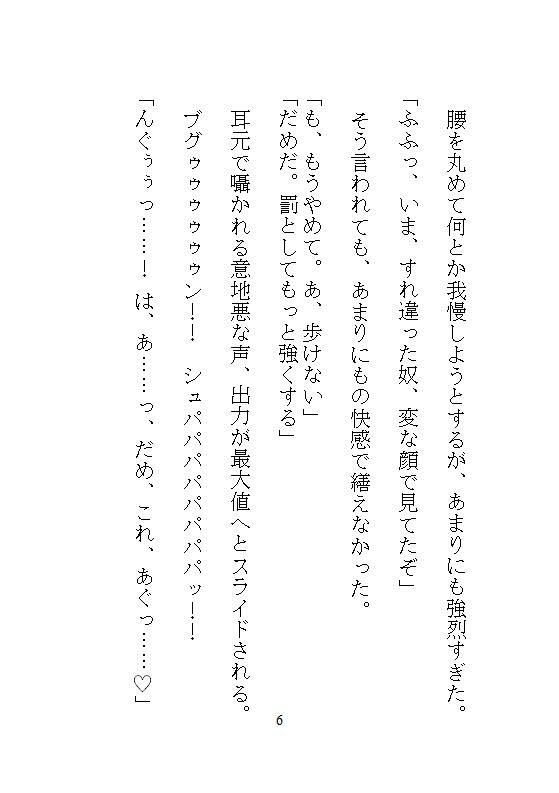 腰を丸めて何とか我慢しようとするが、あまりにも強烈すぎた。
「ふふっ、いま、すれ違った奴、変な顔で見てたぞ」
そう言われても、あまりにもの快感で繕えなかった。
「も、もうやめて。あ、歩けない」
「だめだ。罰としてもっと強くする」
耳元で囁かれる意地悪な声、出力が最大値へとスライドされる。
ブグゥゥゥゥゥゥン!! シュパパパパパパパパッ!!
「んぐぅぅっ……! は、あ……っ、だめ、これ、あぐっ……♡」
6